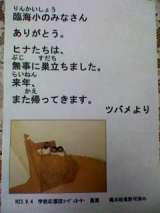 りんかいしょう
臨海小のみなさん
ありがとう。
ヒナたちは、
ぶじ すだち
無事に巣立ちました。
らいねん
来年、
かえ
また帰ってきます。
ツバメより